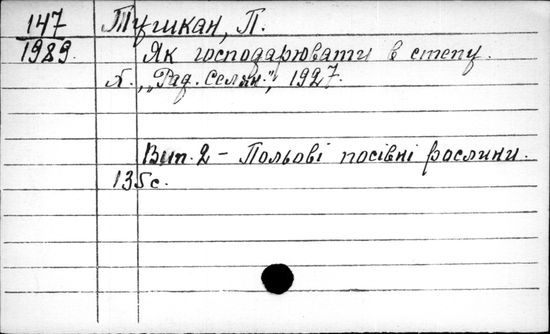 147
1989.
Тушкан, П.
Як господарювати в степу.
Х., „Рад. Селян.", 1927.
Вип. 2 – Польові посівні рослини.
135с.